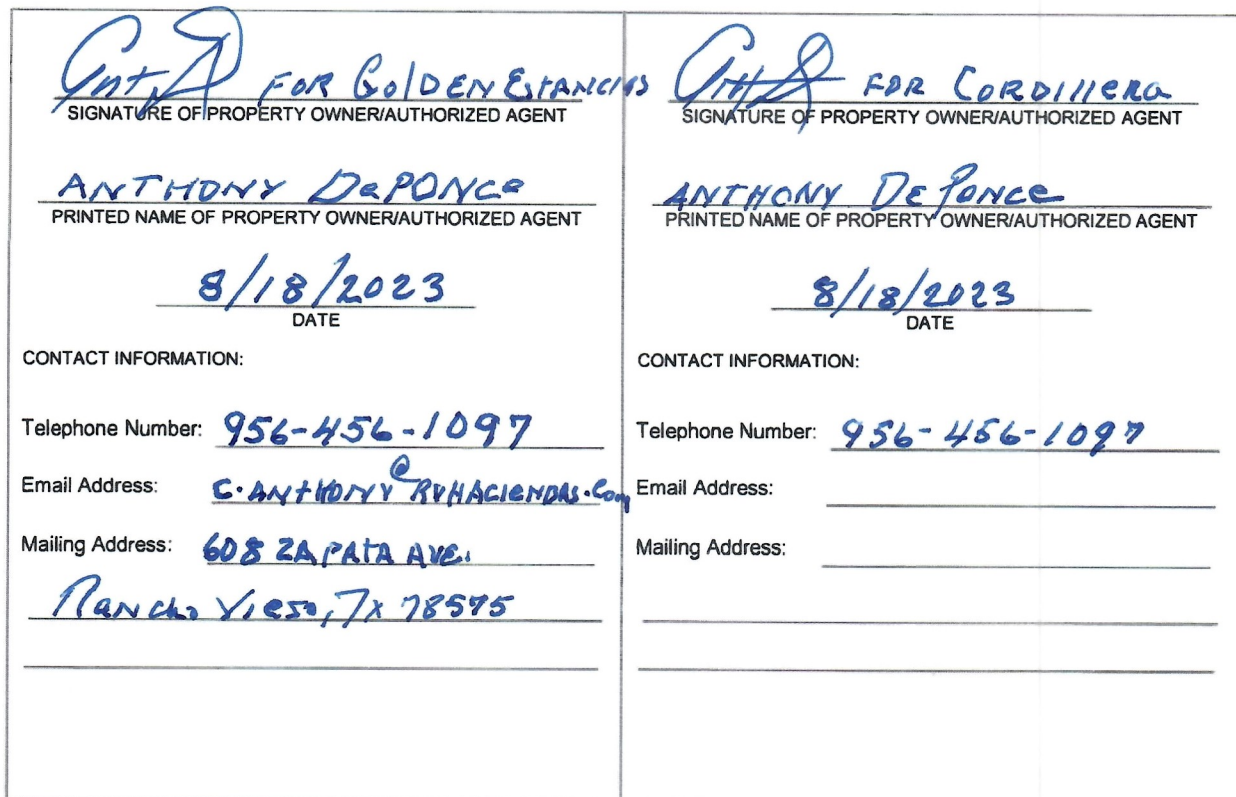 FOR GOlDEN ESTANCIAS
SIGNATURE OF PROPERTY OWNER/AUTHORIZED AGENT
ANTHONY DePONCe
PRINTED NAME OF PROPERTY OWNER/AUTHORIZED AGENT
8/18/2023
DATE
CONTACT INFORMATION:
Telephone Number: 956-456-1097
Email Address: C.ANTHONY@RVHACIENDAS.Com
Mailing Address: 608 ZAPATA AVE.
RANCho VIeJo, TX 78575
FOR CORDIllERa
SIGNATURE OF PROPERTY OWNER/AUTHORIZED AGENT
ANTHONY DE PONce
PRINTED NAME OF PROPERTY OWNER/AUTHORIZED AGENT
8/18/2023
DATE
CONTACT INFORMATION:
Telephone Number: 956-456-1097
Email Address:
Mailing Address: